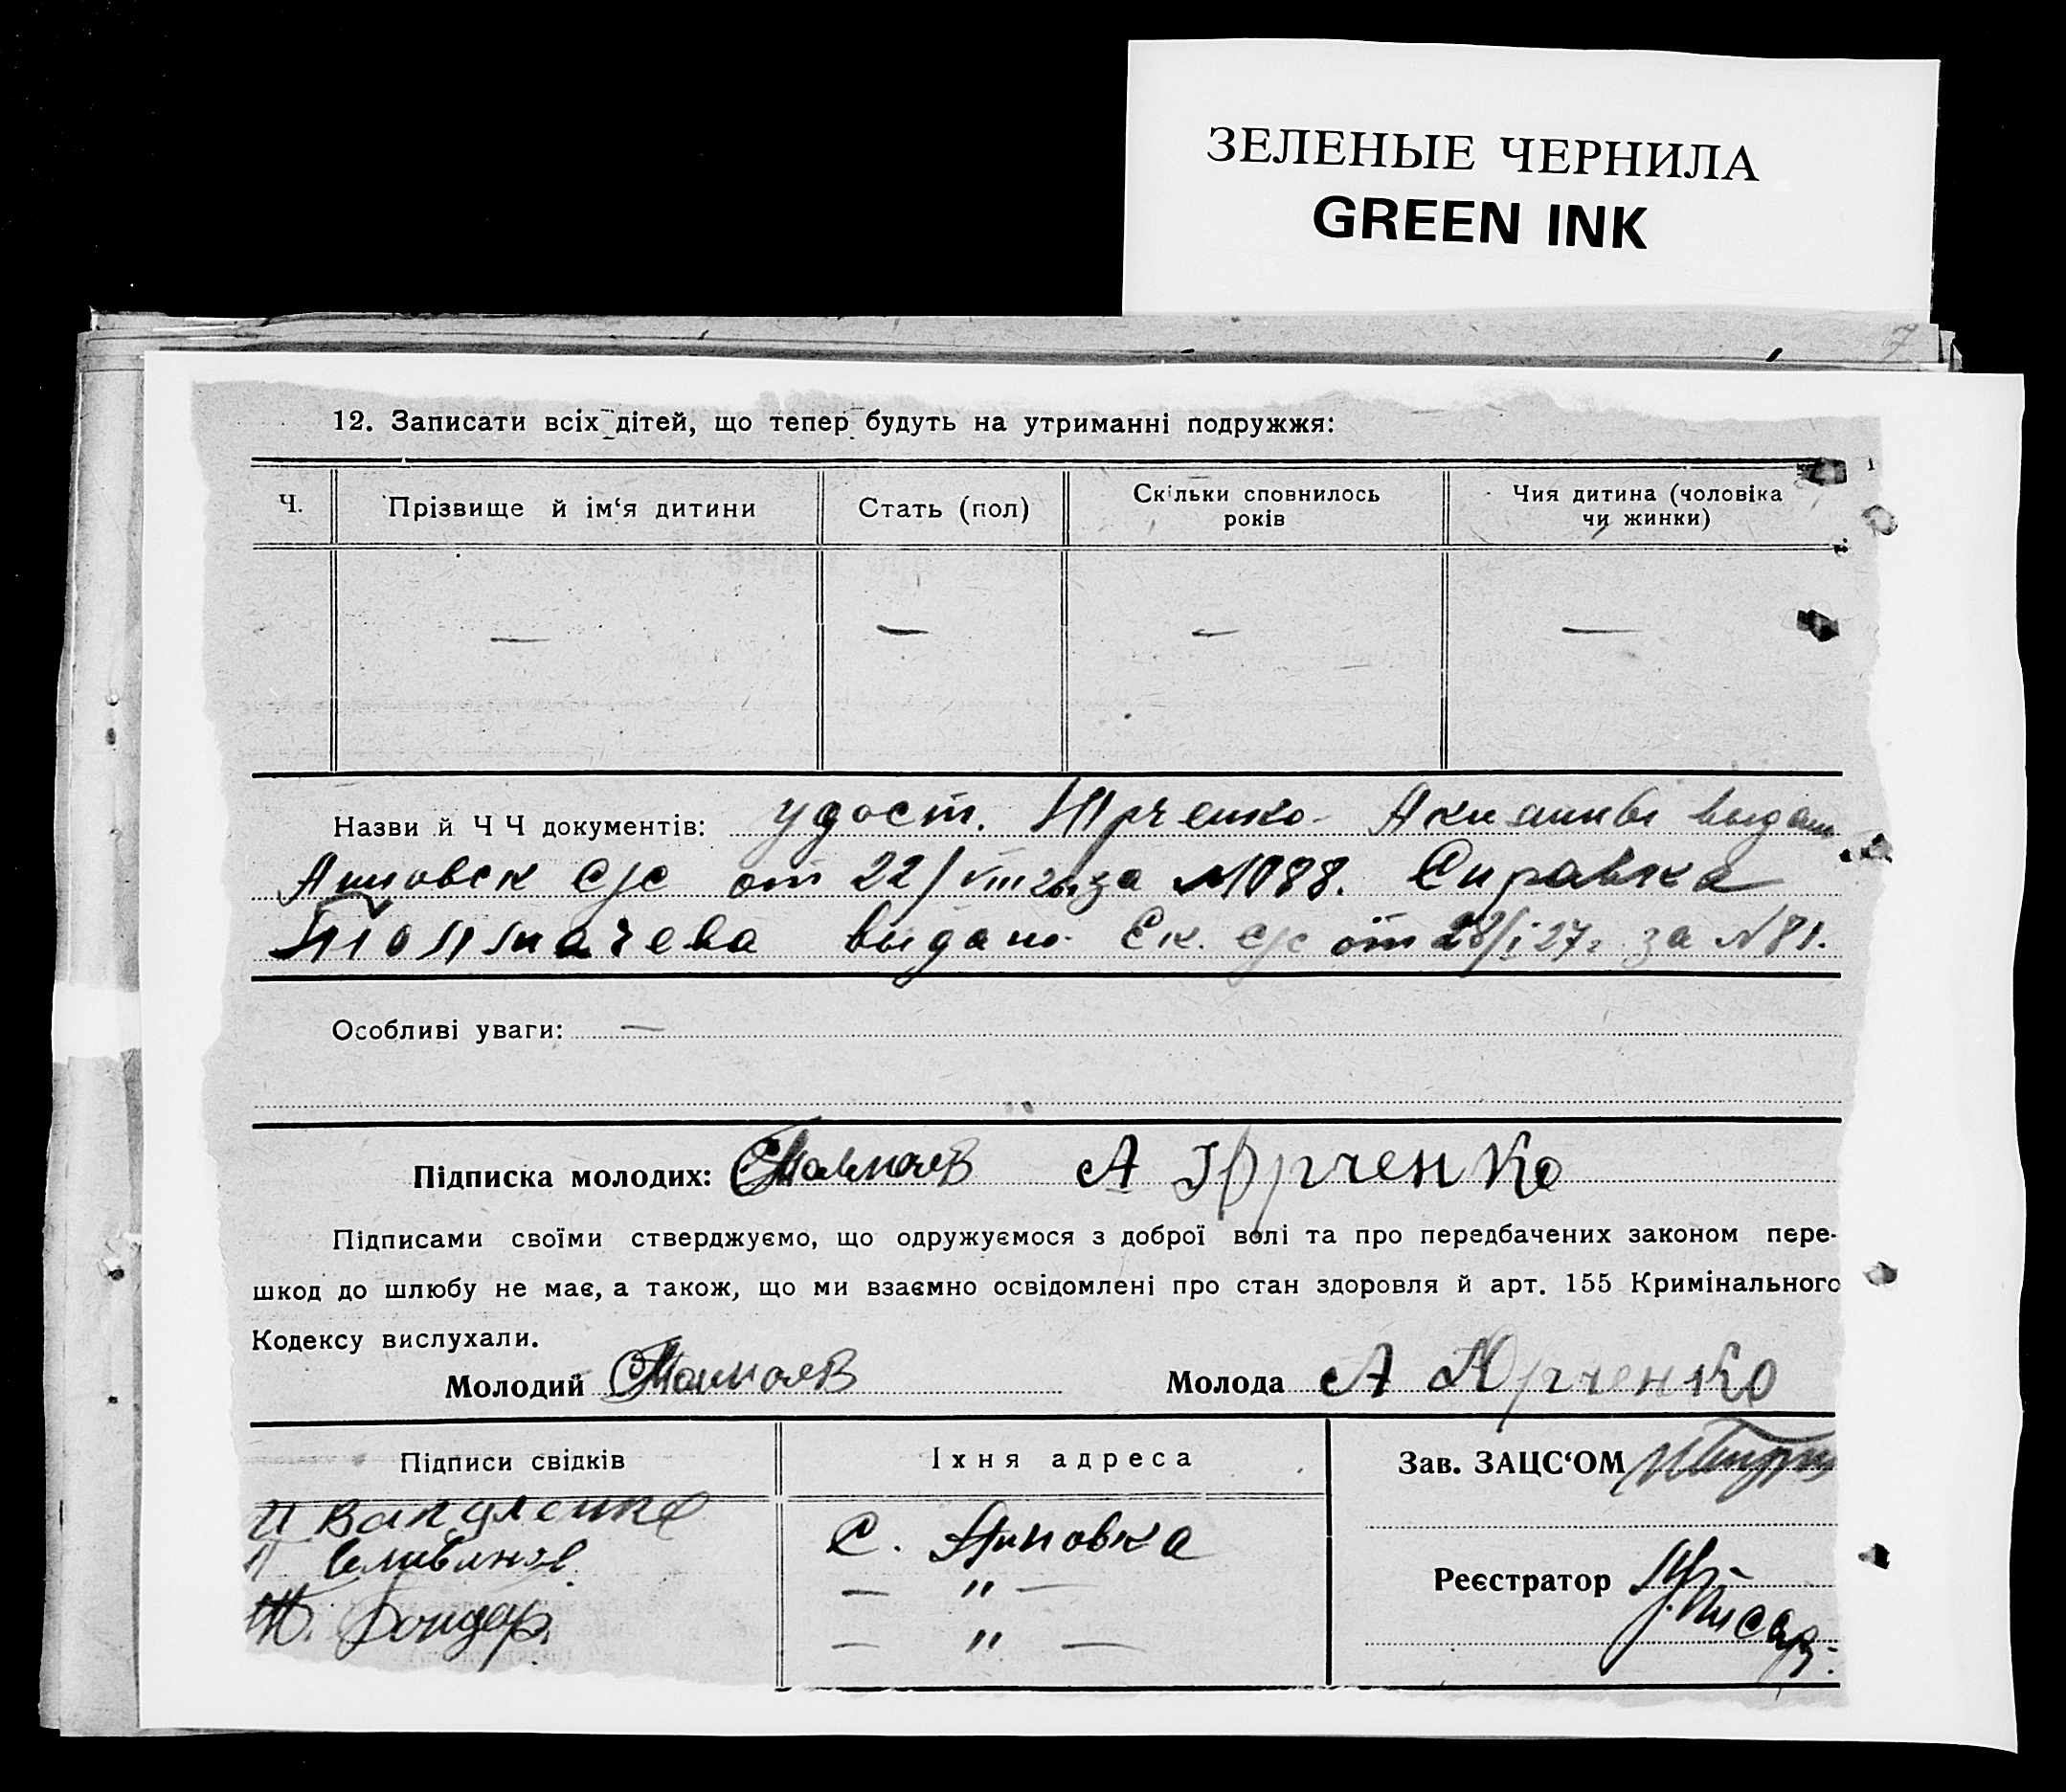 ЗЕЛЕНЫЕ ЧЕРНИЛА
GREEN INK
7
12. Записати всіх дітей, що тепер будуть на утриманні подружжя:
Ч. Прізвище й ім‘я дитини Стать (пол) Скільки сповнилось років Чия дитина (чоловіка чи жинки)
— — — —
Назви й Ч Ч документів: удост. Юрченко
с/с от 22/VIII за №1088. Справка
Толмачева выдано Ск. с/с от 28/I 27г за №81.
Особливі уваги: —
Підписка молодих: А Юрченко
Підписами своїми стверджуємо, що одружуємося з доброї волі та про передбачених законом пере-
шкод до шлюбу не має, а також, що ми взаємно освідомлені про стан здоровля й арт. 155 Кримінального
Кодексу вислухали.
Молодий Молода А Юрченко
Підписи свідків Іхня адреса Зав. ЗАЦС‘ОМ
с.
— " —
Реєстратор
Бондар.
— " —